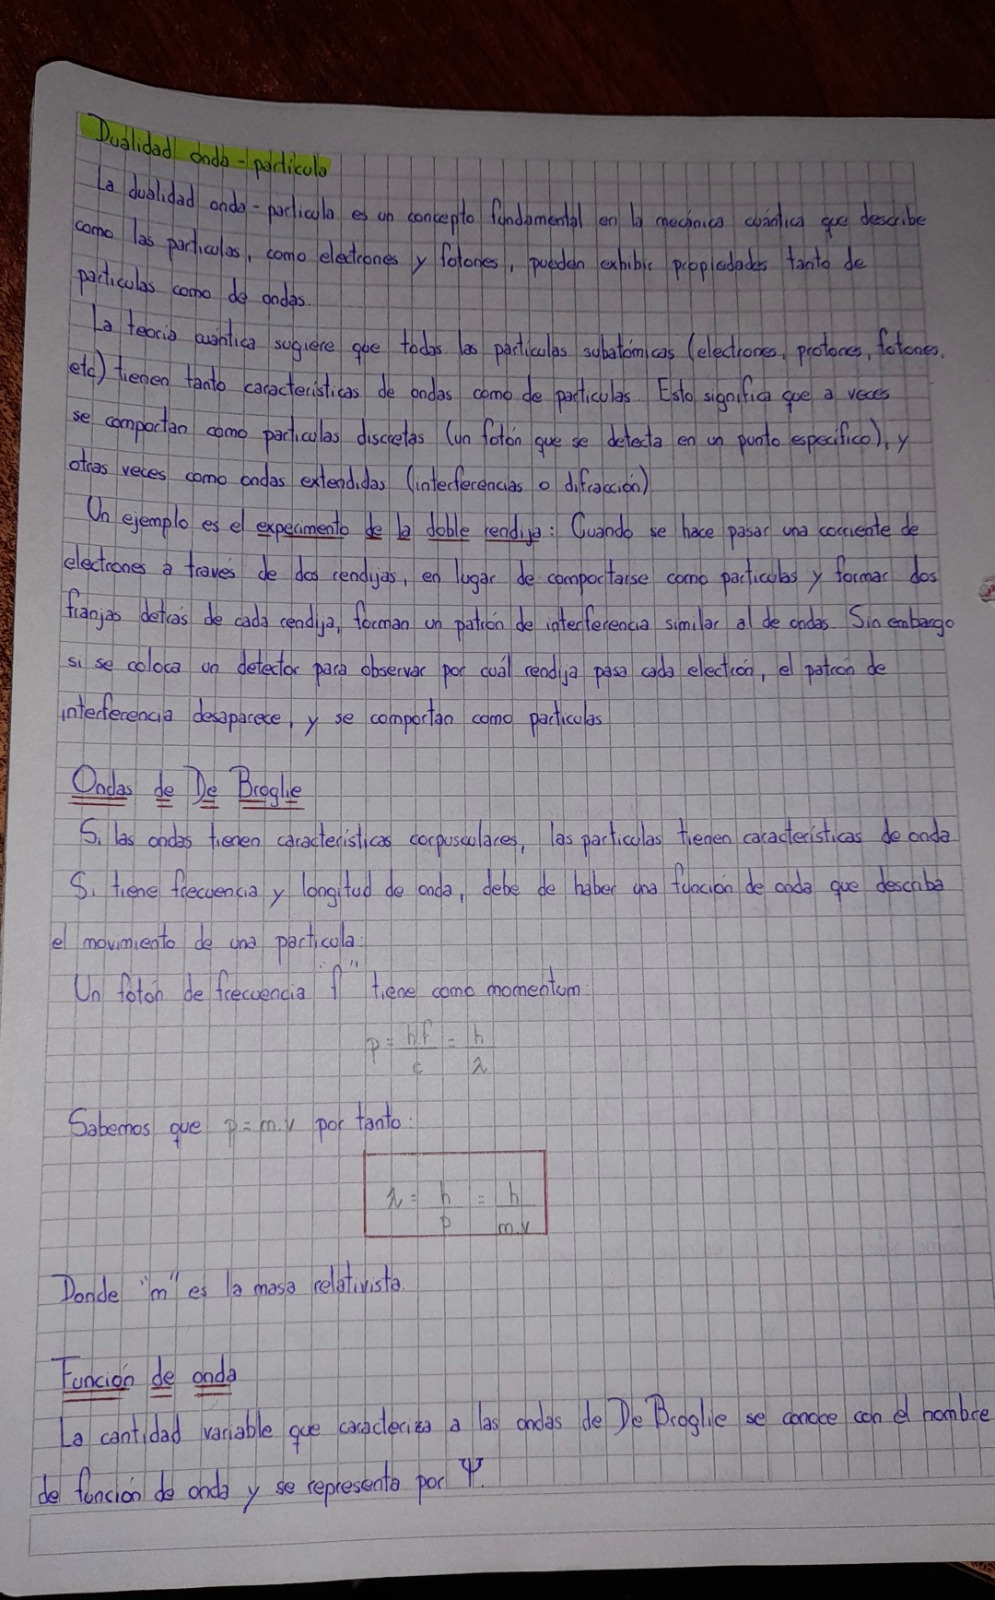 Dualidad onda-partícula
La dualidad onda-partícula es un concepto fundamental en la mecánica cuántica que describe
como las partículas, como electrones y fotones, pueden exhibir propiedades tanto de
partículas como de ondas.
La teoría cuántica sugiere que todas las partículas subatómicas (electrones, protones, fotones,
etc) tienen tanto características de ondas como de partículas. Esto significa que a veces
se comportan como partículas discretas (un fotón que se detecta en un punto específico), y
otras veces como ondas extendidas (interferencias o difracción)
Un ejemplo es el experimento de la doble rendija: Cuando se hace pasar una corriente de
electrones a través de dos rendijas, en lugar de comportarse como partículas y formar dos
franjas detrás de cada rendija, forman un patrón de interferencia similar al de ondas. Sin embargo
si se coloca un detector para observar por cuál rendija pasa cada electrón, el patrón de
interferencia desaparece, y se comportan como partículas
Ondas de De Broglie
Si las ondas tienen características corpusculares, las partículas tienen características de onda.
Si tiene frecuencia y longitud de onda, debe de haber una función de onda que describa
el movimiento de una partícula:
Un fotón de frecuencia "f" tiene como momentum:
p = h.f/c = h/λ
Sabemos que p = m.v por tanto:
λ = h/p = h/m.v
Donde "m" es la masa relativista.
Función de onda
La cantidad variable que caracteriza a las ondas de De Broglie se conoce con el nombre
de función de onda y se representa por Ψ.